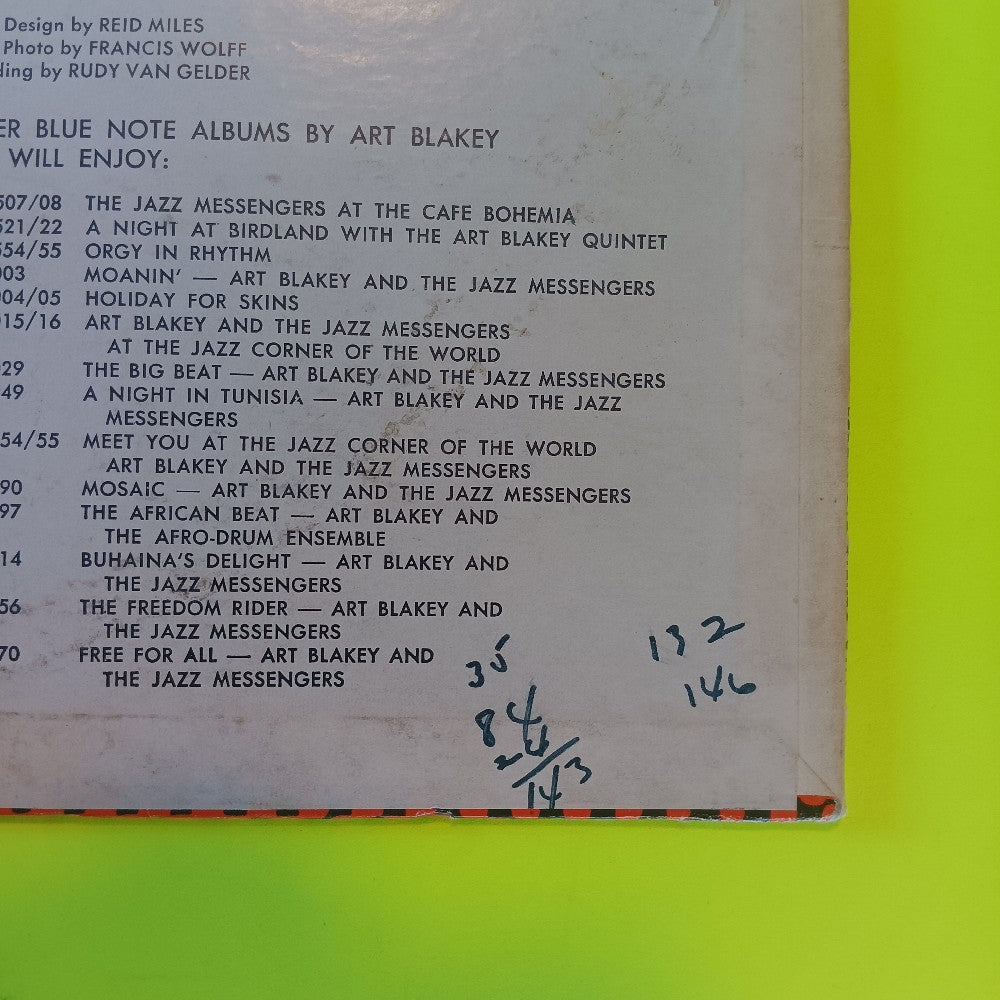 Design by REID MILES
Photo by FRANCIS WOLFF
ding by RUDY VAN GELDER
ER BLUE NOTE ALBUMS BY ART BLAKEY
WILL ENJOY:
507/08 THE JAZZ MESSENGERS AT THE CAFE BOHEMIA
521/22 A NIGHT AT BIRDLAND WITH THE ART BLAKEY QUINTET
554/55 ORGY IN RHYTHM
003 MOANIN' — ART BLAKEY AND THE JAZZ MESSENGERS
004/05 HOLIDAY FOR SKINS
015/16 ART BLAKEY AND THE JAZZ MESSENGERS
AT THE JAZZ CORNER OF THE WORLD
29 THE BIG BEAT — ART BLAKEY AND THE JAZZ MESSENGERS
49 A NIGHT IN TUNISIA — ART BLAKEY AND THE JAZZ
MESSENGERS
54/55 MEET YOU AT THE JAZZ CORNER OF THE WORLD
ART BLAKEY AND THE JAZZ MESSENGERS
90 MOSAIC — ART BLAKEY AND THE JAZZ MESSENGERS
97 THE AFRICAN BEAT — ART BLAKEY AND
THE AFRO-DRUM ENSEMBLE
14 BUHAINA'S DELIGHT — ART BLAKEY AND
THE JAZZ MESSENGERS
56 THE FREEDOM RIDER — ART BLAKEY AND
THE JAZZ MESSENGERS
70 FREE FOR ALL — ART BLAKEY AND
THE JAZZ MESSENGERS
35
84
24
143
132
146